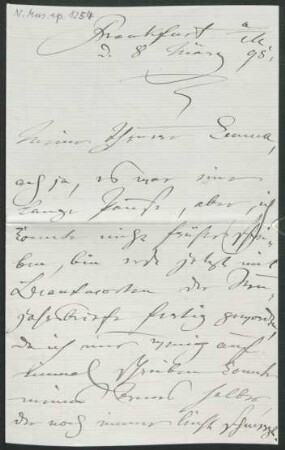 N. Mus. ep. 1254
Frankfurt a/M
d. 8 März 95.
Meine theure Emma,
ach ja, es war eine
lange Pause, aber, ich
konnte nicht früher schrei-
ben, bin erst jetzt mit
Beantworten der Neu-
jahrsbriefe fertig geworden,
da ich nur wenig auf
einmal schreiben konnte
meines Armes halber
der noch immer leicht schmerzt.